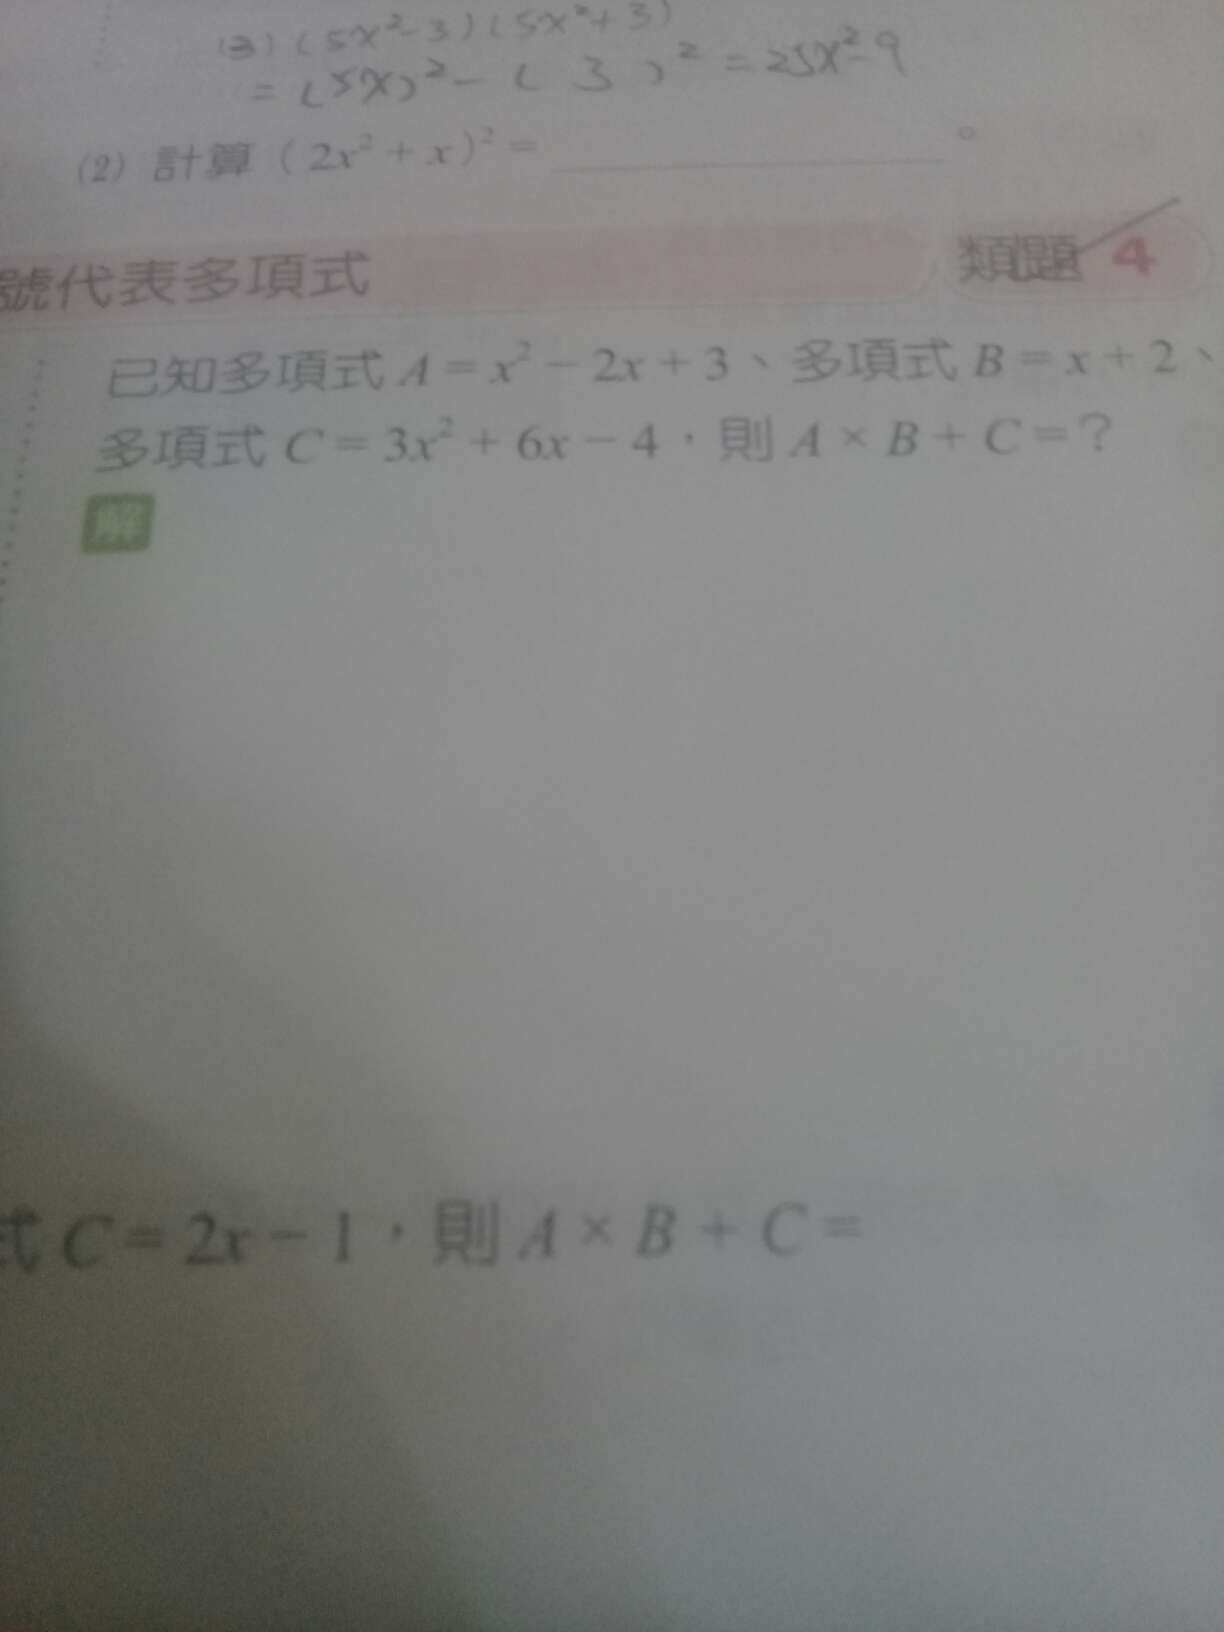 (3) (5x²-3)(5x²+3)
= (5x)² - ( 3 )² = 25x²-9
(2) 計算 (2x² + x)² = ________ 。
號代表多項式 類題 4
已知多項式 A = x² - 2x + 3、多項式 B = x + 2、
多項式 C = 3x² + 6x - 4，則 A × B + C = ?
解
式 C = 2x - 1，則 A × B + C =